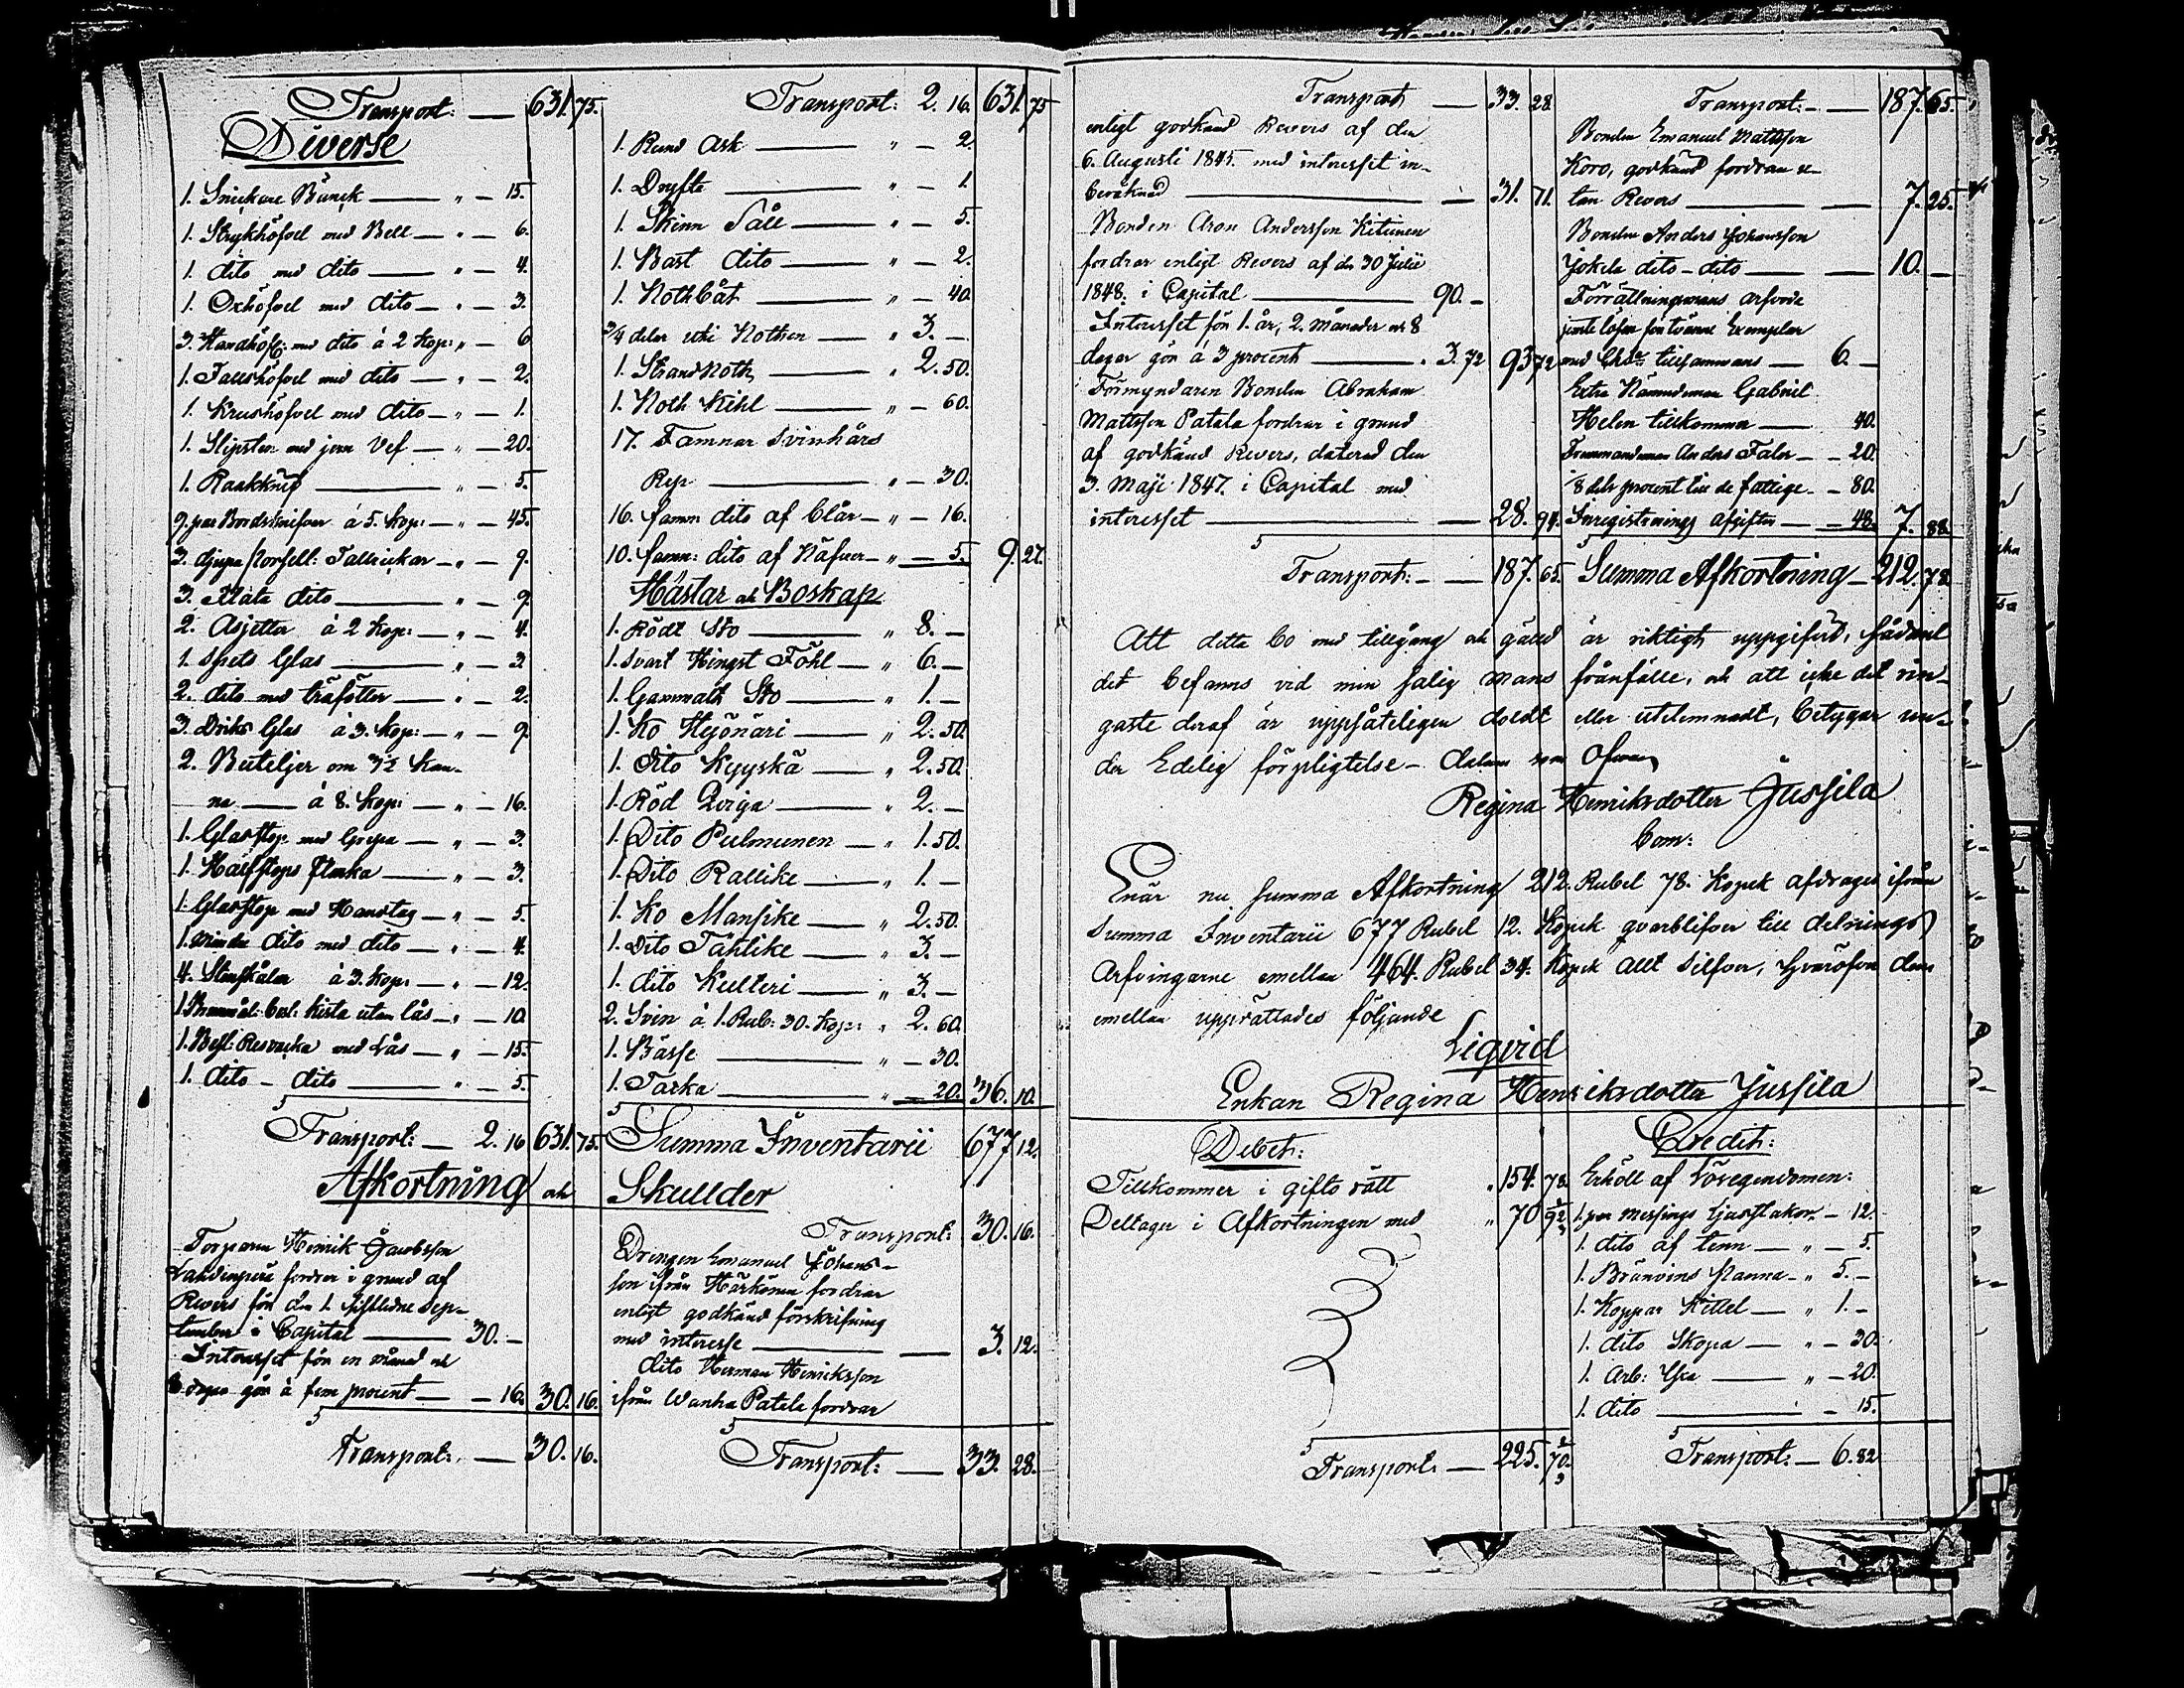 Transport: — 631. 75.
Diverse
1. Snickare Bänck — " — 15.
1. Strykhöfvel med Bett — " — 6.
1. dito med dito — " — 4.
1. Oxhöfvel med dito — " — 3.
3. Handhöfl: med dito á 2 Kop: " — 6
1. Falsshöfvel med dito — " — 2.
1. Krushöfvel med dito — " — 1.
1. Slipsten med jern Vef — " — 20.
1. Raakknif — " — 5.
9. par Bordsknifvar á 5. Kop: — " — 45.
3. djupa Porsell: Tallrickar — " — 9.
3. Flata dito — " — 9.
2. Asjetter á 2 Kop: — " — 4.
1. Spets Glas — " — 3.
2. dito med träfötter — " — 2.
3. Dricks Glas á 3. Kop: — " — 9.
2. Buteljer om 3/2 Kan-
na — á 8. Kop: — " — 16.
1. Glasstop med Gripa — " — 3.
1. Halfstops flaska — " — 3.
1. Glasstop med Handtag — " — 5.
1. Mindre dito med dito — " — 4.
4. Stenskålar á 3. Kop: — " — 12.
1. besl: Kista utan lås — " — 10.
1. Besl: Resvaska med Lås — " — 15.
1. dito — dito — " — 5.
Transport: — 2. 16 631. 75.
Transport: 2. 16. 631. 75
1. Rund Ask — " — 2.
1. Dryfte — " — 1.
1. Skinn Såll — " — 5.
1. Bast dito — " — 2.
1. Nothbåt — " — 40.
3/4 delar uti Nothen — " 3. —
1. StrandNoth — " 2. 50.
1. Noth Kihl — " — 60.
17. Famnar Svinhårs
Rep — " — 30.
16. famn dito af blår — " — 16.
10. famn: dito af Näfver — " — 5. 9. 27.
Hästar och Boskap
1. Rödt Sto — " 8. —
1. Svart Hingst Föhl — " 6. —
1. Gammalt Sto — " 1. —
1. Ko Hejönäri — " 2. 50.
1. dito Kyyskä — " 2. 50.
1. Röd Qviga — " 2. —
1. Dito Pulmunen — " 1. 50.
1. Dito Rallike — " 1. —
1. Ko Mansike — " 2. 50.
1. Dito Tähtike — " 3. —
1. dito Kulteri — " 3. —
2. Svin á 1. Rub: 30. Kop: " 2. 60.
1. Basse — " — 30.
1. Tacka — " — 20. 36. 10.
Summa Inventarii 677. 12.
Afkortning och Skullder
Torparen Henrik Jacobsson
fordrar i grund af
Revers för den 1. sistledne Sep-
tember i Capital — 30. —
Intresset för en månad och
8 dagar gör á fem procent — — 16. 30. 16.
Transport: — 30. 16.
Transport: 30. 16.
Drengen Emanuel Johans-
son ifrån Härkönen fordrar
enligt godkänd förskrifning
med interesse — 3. 12.
dito Herman Henriksson
ifrån Wanha Patala fordrar
Transport: — 33. 28.
Transport — 33. 28.
enligt godkänd Revers af den
6. Augusti 1845. med intresset in-
beräknad — 31. 71.
Bonden Aron Andersson Kitunen
fordrar enligt Revers af den 30 Julii
1848. i Capital — 90. —
Intresset för 1. år, 2. Månader och 8
dagar gör á 3 procent — 3. 72 93 72
Förmyndaren Bonden Abraham
Mattsson Patala fordrar i grund
af godkänd Revers, daterad den
3. Maji 1847. i Capital med
intresset — 28. 94.
Transport: — — 187. 65.
Transport: — — 187. 65.
Bonden Emanuel Mattsson
Koro, godkänd fordran u-
tan Revers — 7. 25.
Bonden Anders Johansson
Jokela dito — dito — 10. —
Förrättningsmans arfvode
jemte lösen för tvänne Exemplar
med tillsammans — 6. —
Extra Nämndeman Gabriel
Helen tillkommer — 40.
Anders Faler — — 20.
1/8 dels procent till de fattige — — 80.
Inregistrerings afgiften — — 48. 7. 88.
Summa Afkortning — 212. 78.
Att detta bo med tillgång och gäld är riktigt uppgifvit, sådant
det befanns vid min salig mans frånfälle, och att icke det rin-
gaste deraf är uppsåteligen doldt eller utelemnadt, betygar un-
der Edelig förpligtelse — datum som Ofvan
Regina Henriksdotter Jussila
bom:
Enär nu summa Afkortning 212. Rubel 78. Kopek afdrages ifrån
Summa Inventarii 677 Rubel 12. Kopek qvarblifver till delnings
Arfvingarne emellan 464. Rubel 34. Kopek Allt Silfver, hvaröfver dem
emellan upprättades följande
Liqvid
Enkan Regina Henriksdotter Jussila
Debet:
Tillkommer i gifto rätt " 154. 78.
Deltager i Afkortningen med " 70 92 2/3
Transport: — 225. 70. 2/3
Credit:
Erhöll af Lösegendomen:
1. par Messings Ljusstakar — — 12.
1. dito af tenn — " — 5.
1. Bränvins Panna — " 5. —
1. Koppar Kittel — " 1. —
1. dito Skopa — " — 30.
1. Arb: Yxa — " — 20.
1. dito — — 15.
Transport: — 6. 82